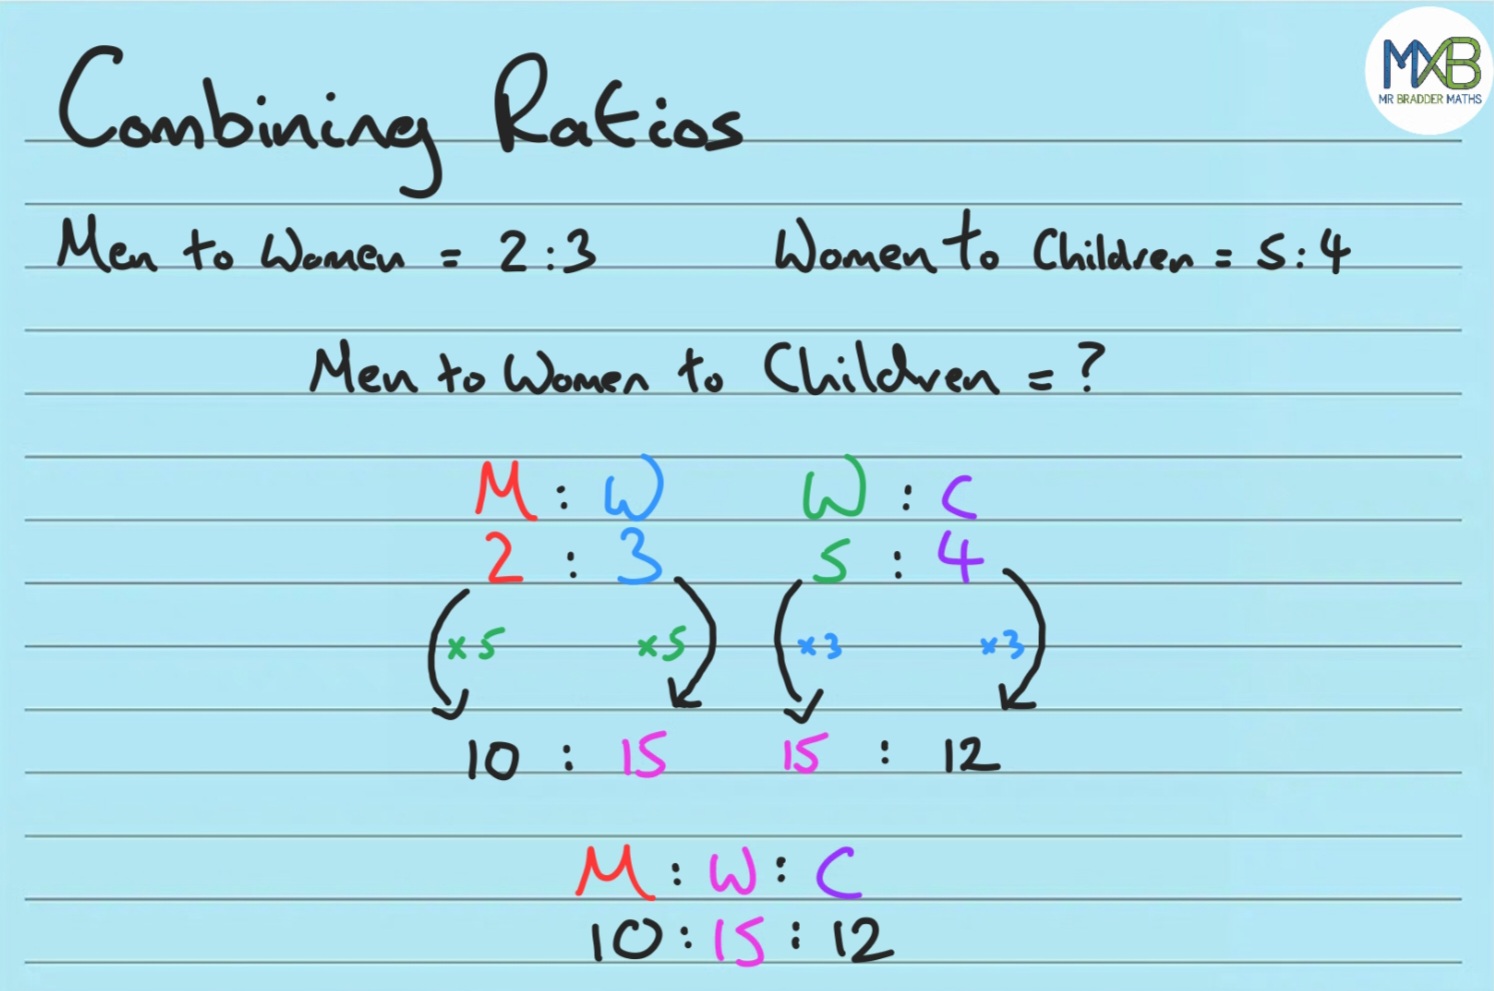 Combining Ratios
MXB
MR BRADDER MATHS
Men to Women = 2:3
Women to Children = 5:4
Men to Women to Children = ?
M : W
W : C
2 : 3
5 : 4
×5
×5
×3
×3
10 : 15
15 : 12
M : W : C
10 : 15 : 12